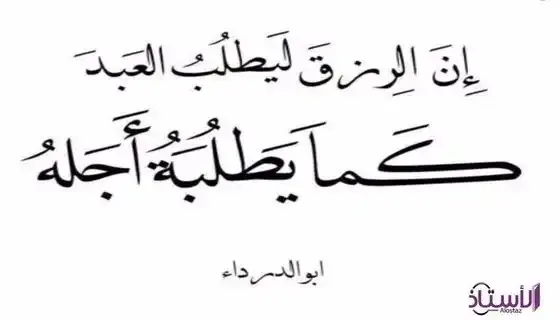 إِنَ الِرزقَ لَيَطلُبُ العَبدَ
كَماَ يَطلُبَةُ أَجَلهُ
ابو الدرداء
الأستاذ
Alostaz